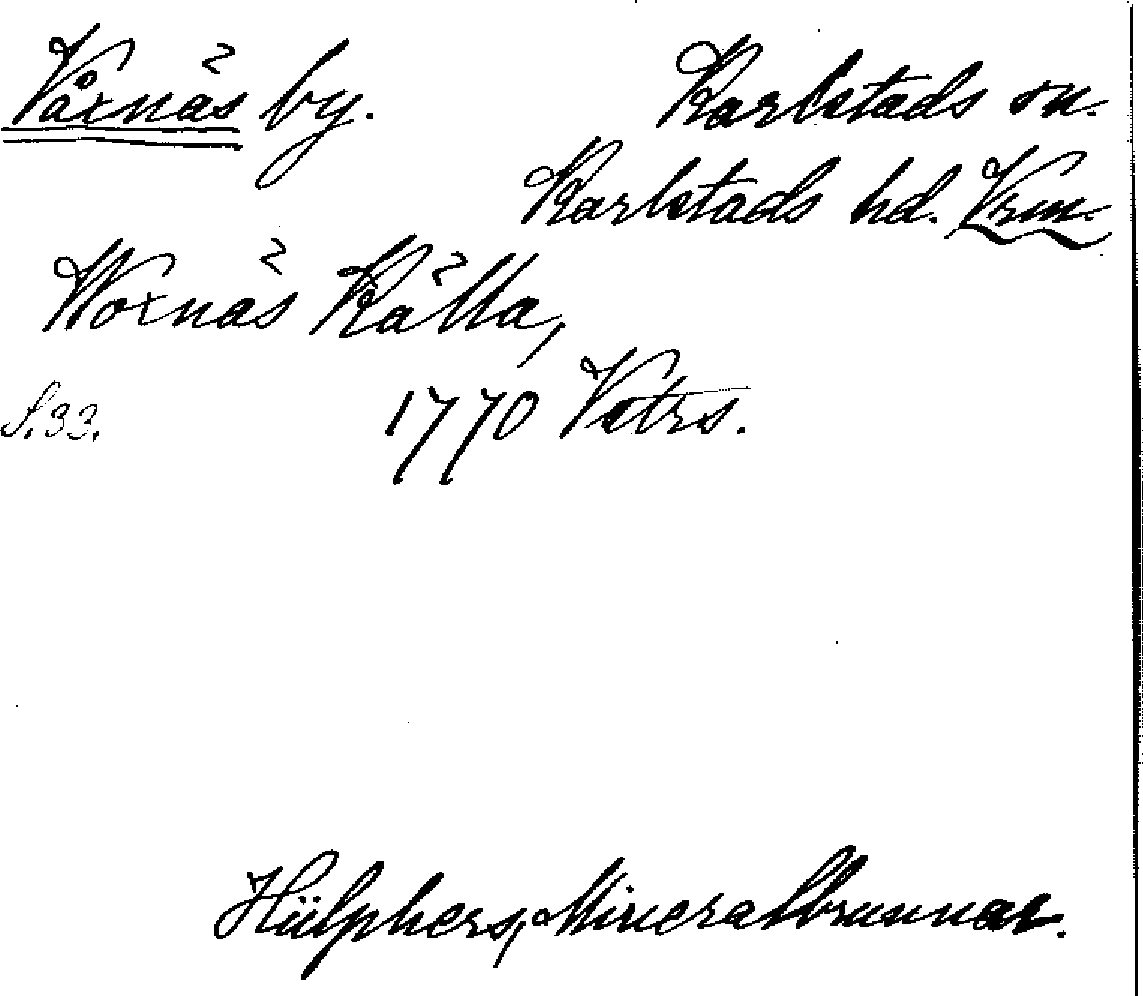 Våxnäs by. Karlstads sn.
Karlstads hd. Vrm.
Woxnäs Källa,
S. 33. 1770 Vstrs.
Hülphers, Mineralbrunnar.